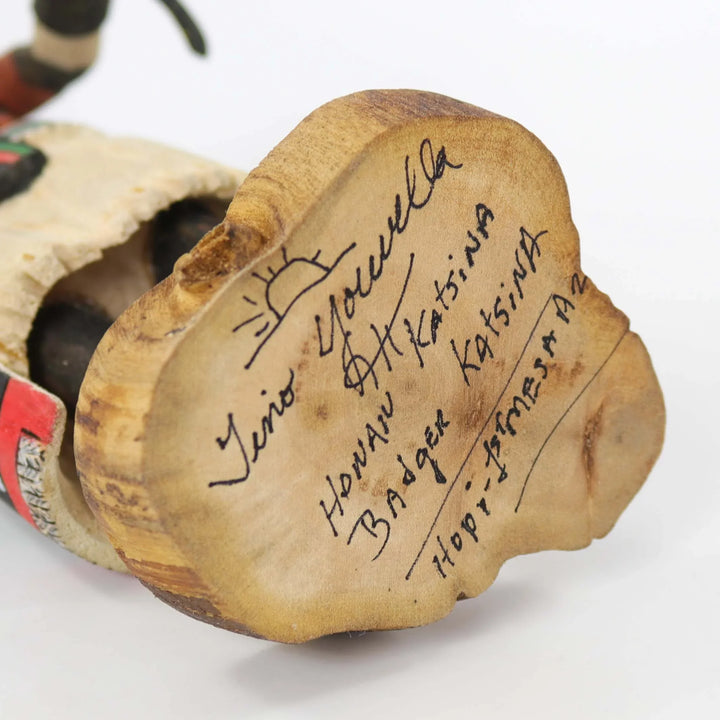 Tino Youvella
HONAN KATSINA
BADGER KATSINA
HOPI-1st MESA AZ